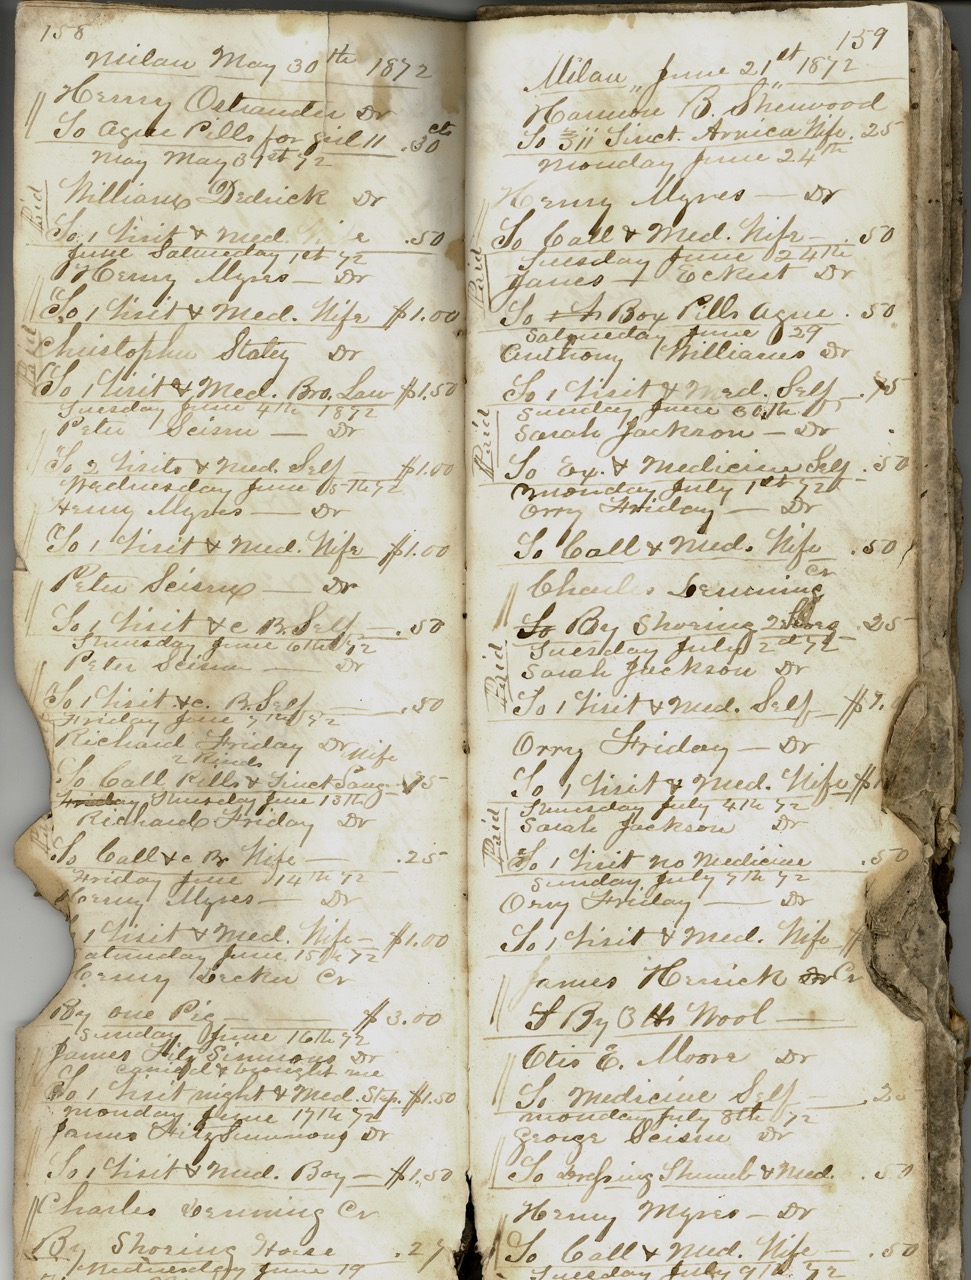 158
Milan May 30th 1872
Henry Ostrander Dr
To Ague Pills for girl 11 .30cts
May May 31st 72
Paid
William Dedrick Dr
To 1 Visit & Med. Wife .50
June Saturday 1st 72
Henry Myres — Dr
To 1 Visit & Med. Wife $1.00
Paid
Christopher Staley Dr
To 1 Visit & Med. Bro. Law $1.50
Tuesday June 4th 1872
Peter Scism — Dr
To 2 Visits & Med. Self — $1.00
Wednesday June 5th 72
Henry Myres — Dr
To 1 Visit & Med. Wife $1.00
Peter Scism — Dr
To 1 Visit &c B. Self — .50
Thursday June 6th 72
Peter Scism — Dr
To 1 Visit &c. B. Self — .50
Friday June 7th 72
Richard Friday Dr Wife
2 Kinds
To Call Pills & Tinct Sang - 75
Friday Thursday June 13th
Richard Friday Dr
To Call &c B Wife — .25
Friday June 14th 72
Henry Myres — Dr
1 Visit & Med. Wife — $1.00
aturday June 15th 72
Henry Decker Cr
By one Pig — $3.00
Sunday June 16th 72
James Fitz Simmons Dr
carried & brought me
To 1 Visit night & Med. Step. $1.50
Monday June 17th 72
James Fitz Simmons Dr
To 1 Visit & Med. Boy — $1.50
Charles Denning Cr
By Shoeing Horse .27
Wednesday June 19
159
Milan, June 21st 1872
Harmon B. Sherwood
To ʒ11 Tinct. Arnica Wife. 25
Monday June 24th
Henry Myres — Dr
To Call & Med. Wife — .50
Paid
Tuesday June 24th
James Eckert Dr
To Box Pills Ague . 50
Saturday June 29
Anthony Williams Dr
To 1 Visit & Med. Self — .75
Sunday June 30th
Paid
Sarah Jackson — Dr
To Ex. & Medicine Self . 50
Monday July 1st 72
Orry Friday — Dr
To Call & Med. Wife .50
Charles Denning Cr
To By Shoeing 2 .25
Tuesday July 2d 72
Paid
Sarah Jackson Dr
To 1 Visit & Med. Self — $1.
Orry Friday — Dr
To 1 Visit & Med. Wife $1
Thursday July 4th 72
Paid
Sarah Jackson Dr
To 1 Visit no Medicine .50
Sunday July 7th 72
Orry Friday — Dr
To 1 Visit & Med. Wife $
James Herrick Dr Cr
By 3 lbs Wool —
Otis E. Moore Dr
To Medicine Self — .2
Monday July 8th 72
George Scism Dr
To Dressing Thumb & Med. .50
Henry Myres — Dr
To Call & Med. Wife — .50
Tuesday July 9th 72